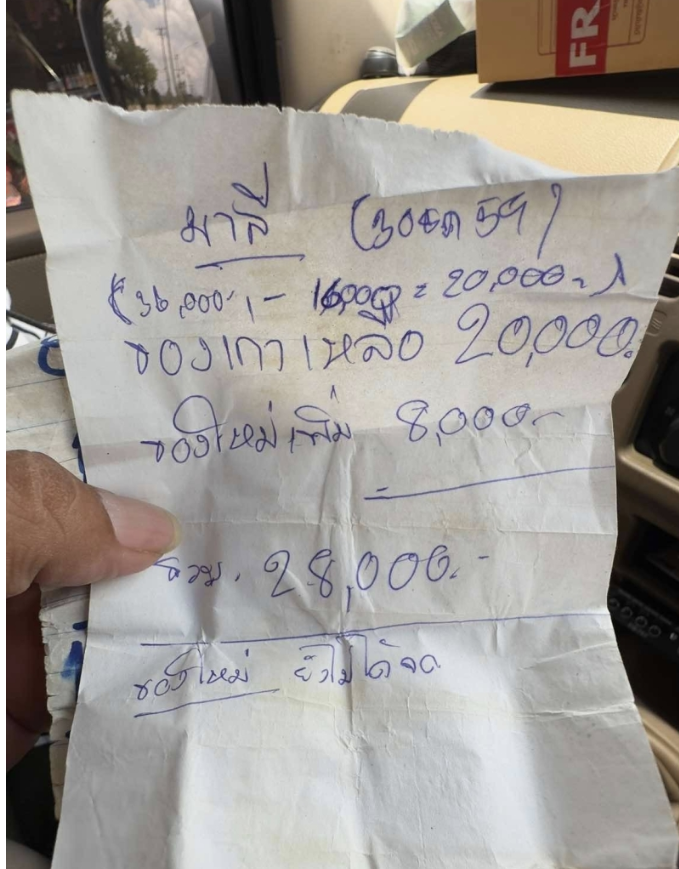 FR
มาลี (30ตค59)
(36,000.- - 16,000 = 20,000.-)
ของเก่าเหลือ 20,000.
ของใหม่เพิ่ม 8,000.-
รวม. 28,000.-
ของใหม่ ยังไม่ได้จด